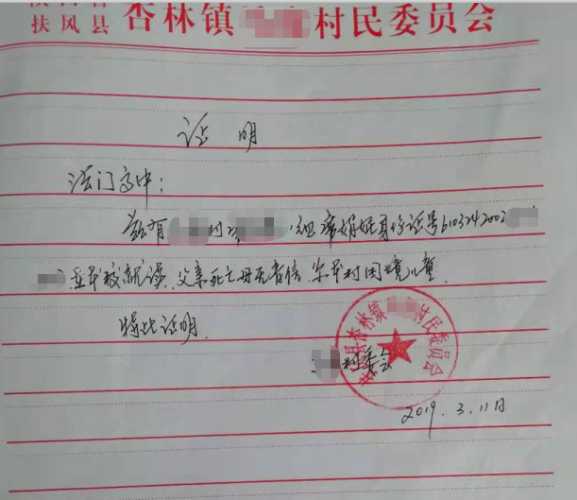 扶风县 杏林镇 村民委员会
证 明
法门高中：
兹有 村 组 身份证号6103242002
校就读、父亲死亡母无音信、 村困境儿童.
特此证明.
县杏林镇 村民委员会
村委会
2019.3.11日